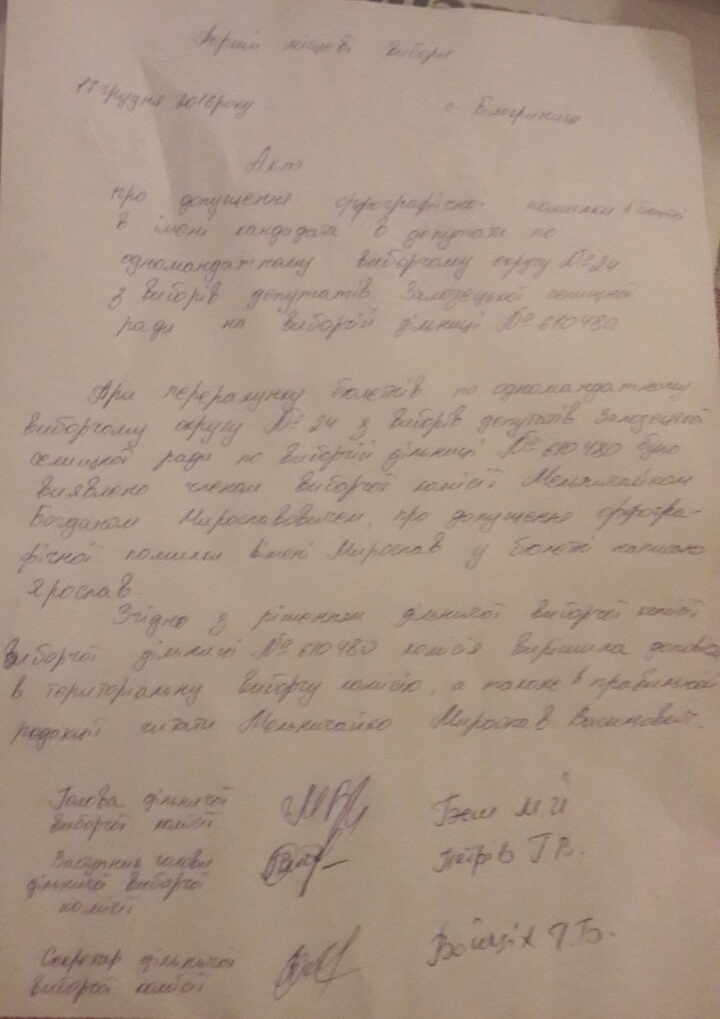 Перші місцеві вибори
17 грудня 2016 року с. Білокриниця
Акт
про допущення орфографічної помилки
в імені кандидата в депутати по
одномандатному виборчому округу №24
з виборів депутатів Залозецької селищної
ради на виборчій дільниці №610480
При перерахунку бюлетнів по одномандатному
виборчому округу №24 з виборів депутатів Залозецької
селищної ради по виборчій дільниці №610480 було
виявлено членом виборчої комісії Мельничайком
Богданом Мирославовичем, про допущення орфогра-
фічної помилки в імені Мирослав у бюлетні написано
Ярослав.
Згідно з рішенням дільничої виборчої комісії
виборчої дільниці №610480 комісія вирішила
в територіальну виборчу комісію, а також в правильній
редакції читати Мельничайко Мирослав Васильович.
Голова дільничої
виборчої комісії М.Й
Заступник голови Петрів Г.В.
дільничої виборчої
комісії
Секретар дільничої Войціх Г.Б.
виборчої комісії